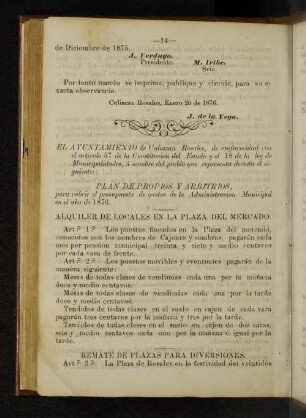 —14—
de Diciembre de 1875.
J. Verdugo.
Presidente.
M. Iribe.
Srio.
Por tanto mando se imprima, publique y circule, para su e-
xacta observancia.
Culiacan Rosales, Enero 20 de 1876.
J. de la Vega.
EL AYUNTAMIENTO de Culiacan Rosales, de conformidad con
el artículo 57 de la Constitucion del Estado y el 18 de la ley de
Municipalidades, á nombre del pueblo que representa decreta el si-
guiente:
PLAN DE PROPIOS Y ARBITRIOS,
para cubrir el presupuesto de gastos de la Administracion Municipal
en el año de 1876.
ALQUILER DE LOCALES EN LA PLAZA DEL MERCADO.
Art.º 1.º Los puestos fincados en la Plaza del mercado,
conocidos con los nombres de Cajones y sombras, pagarán cada
mes por pension municipal treinta y siete y medio centavos
por cada vara de frente.
Art.º 2.º Los puestos móviles y eventuales pagarán de la
manera siguiente:
Mesas de todas clases de vendimias cada una por la mañana
doce y medio centavos.
Mesas de todas clases de vendimias cada una por la tarde
doce y medio centavos.
Tendidos de todas clases en el suelo en cajon de cada vara
pagarán tres centavos por la mañana y tres por la tarde.
Tendidos de todas clases en el suelo en cajon de dos varas,
seis y medio centavos cada uno por la mañana é igual por la
tarde.
REMATE DE PLAZAS PARA DIVERSIONES.
Art.º 3.º La Plaza de Rosales en la festividad del veintidos